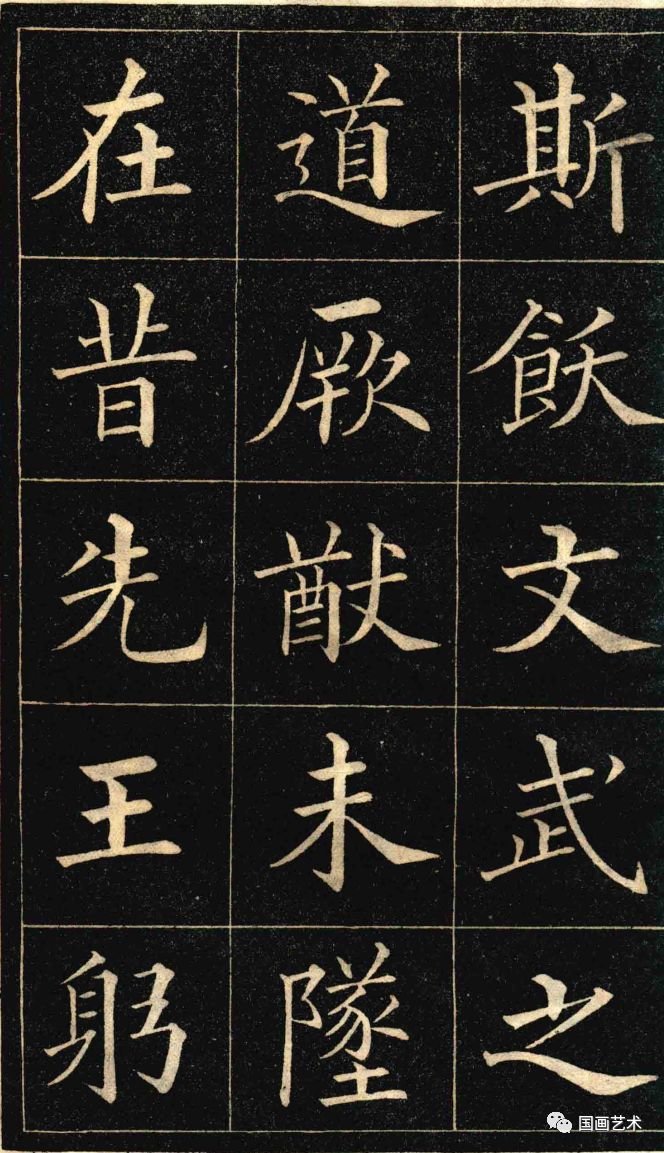 斯飫文武之
道厥猷未墜
在昔先王躬
国画艺术